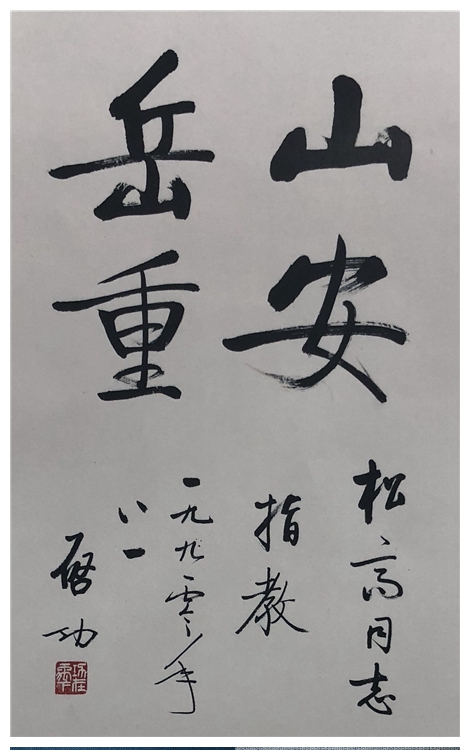 山安
岳重
松高同志
指教
一九九零年
八一
启功